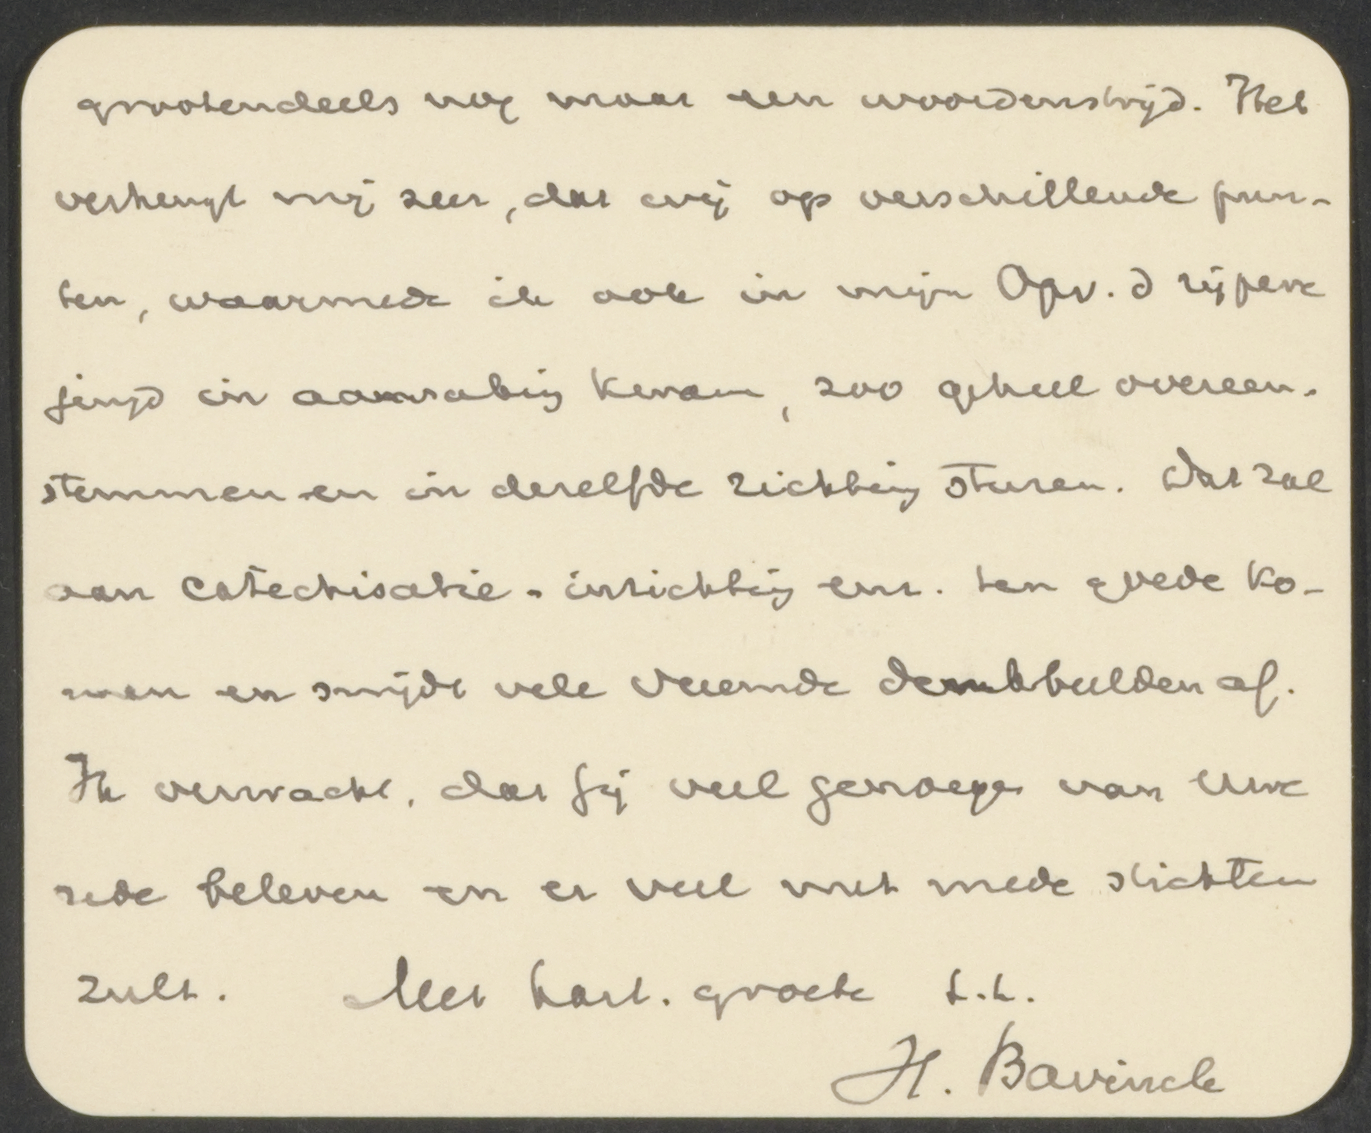 grootendeels nog maar een woordenstrijd. Het
verheugt mij zeer, dat wij op verschillende pun-
ten, waarmede ik ook in mijn Opv. d rijpere
jeugd in aanraking kwam, zoo geheel overeen-
stemmen en in dezelfde richting sturen. Dat zal
aan catechisatie-inrichting enz. ten goede ko-
men en snijdt vele vreemde denkbeelden af.
Ik verwacht, dat gij veel genoegen van Uwe
rede beleven en er veel nut mede stichten
zult. Met hart. groete t.t.
H. Bavinck